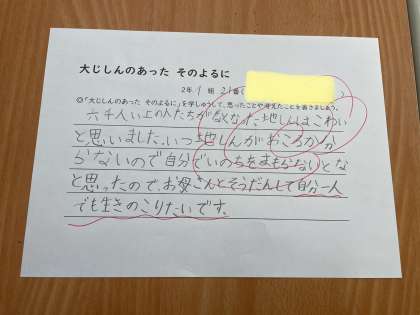 大じしんのあった そのよるに
2年 1 組 21番(
◎「大じしんのあった そのよるに」を学しゅうして、思ったことや考えたことを書きましょう。
六千人い上の人たちがなくなった地しんはこわい
と思いました。いつ地しんがおこるか分
からないので自分でいのちをまもらないとな
と思ったので、お母さんとそうだんして自分一人
でも生きのこりたいです。